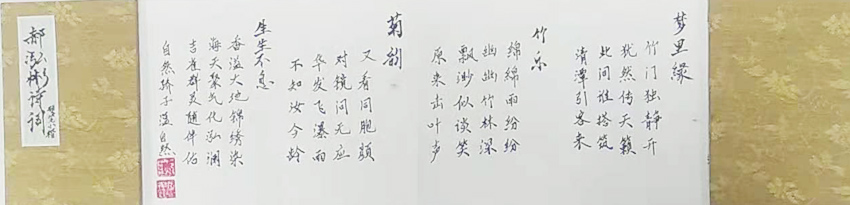 梦里缘
竹门独静开
犹然传天籁
此间谁搭筑
清潭引客来
竹乐
绵绵雨纷纷
幽幽竹林深
飘渺似谈笑
原来出叶声
菊韵
又看同胞颜
对镜问无应
华发飞瀑雨
不知汝今龄
生生不息
香溢大地锦绣染
海天聚气化泓澜
吉雀群灵随伴仙
自然骄子
郝泓彬诗词